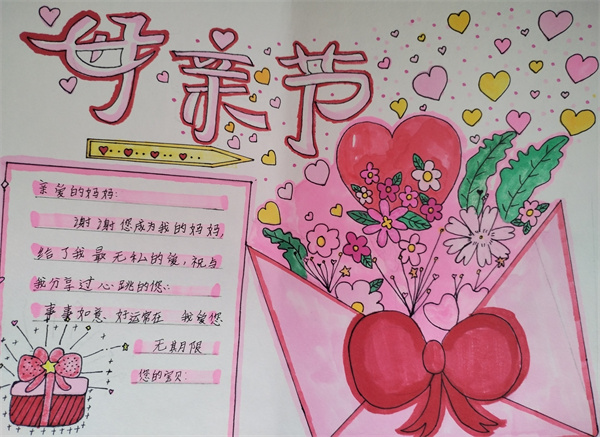 母亲节
亲爱的妈妈:
谢谢您成为我的妈妈,
给了我最无私的爱,祝与
我分享过心跳的您:
事事如意 好运常在 我爱您
无期限
您的宝贝: